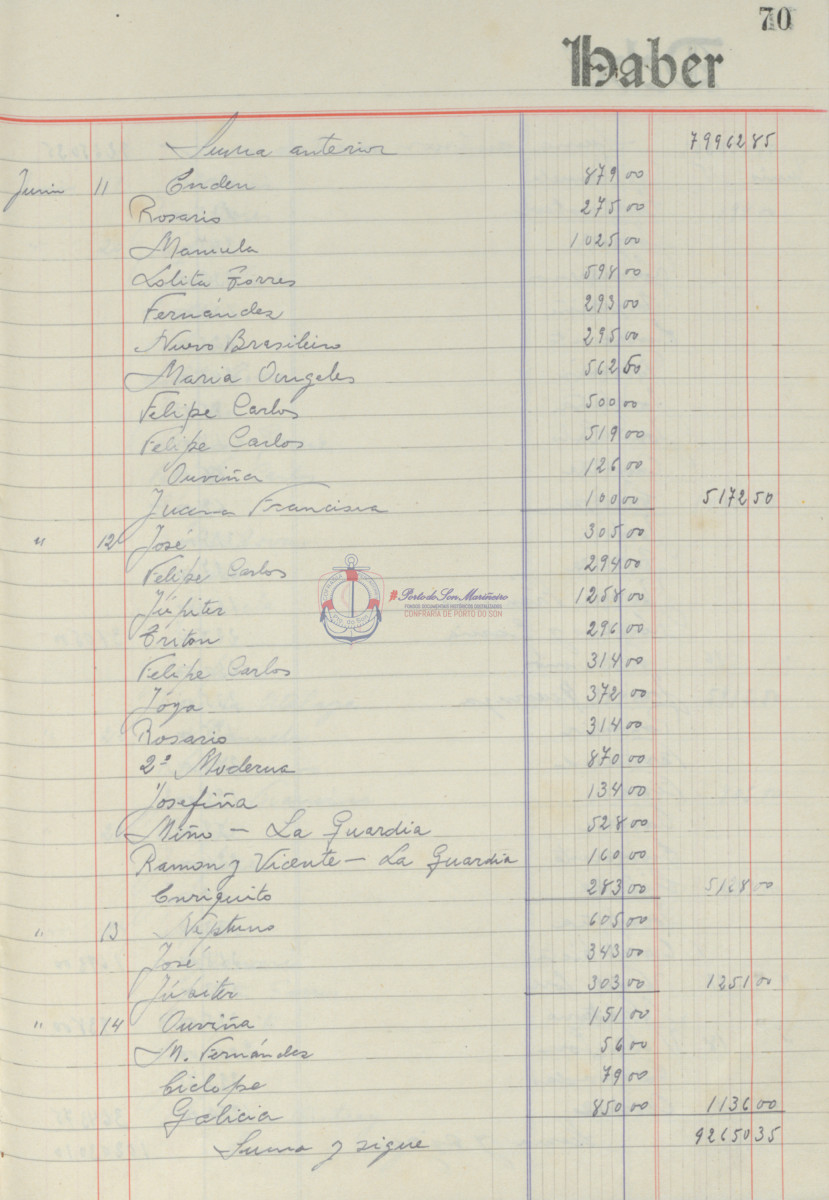 70
Haber
Suma anterior 7996285
Junio 11 Enden 879 00
Rosario 275 00
Manuela 1025 00
Lolita Torres 598 00
Fernández 293 00
Nuevo Brasileiro 295 00
Maria Angeles 562 50
Felipe Carlos 500 00
Felipe Carlos 519 00
Ouviña 126 00
Juana Francisca 100 00 5172 50
" 12 José 305 00
Felipe Carlos 294 00
Júpiter 1258 00
Triton 296 00
Felipe Carlos 314 00
Joya 372 00
Rosario 314 00
2ª Moderna 870 00
Josefiña 134 00
Miño – La Guardia 528 00
Ramon y Vicente – La Guardia 160 00
Enriquito 283 00 5128 00
" 13 Neptuno 605 00
José 343 00
Júpiter 303 00 1251 00
" 14 Ouviña 151 00
M. Fernández 56 00
Ciclope 79 00
Galicia 850 00 1136 00
Suma y sigue 9265035
#Porto do Son Mariñeiro
FONDOS DOCUMENTAIS HISTÓRICOS DIXITALIZADOS
CONFRARÍA DE PORTO DO SON